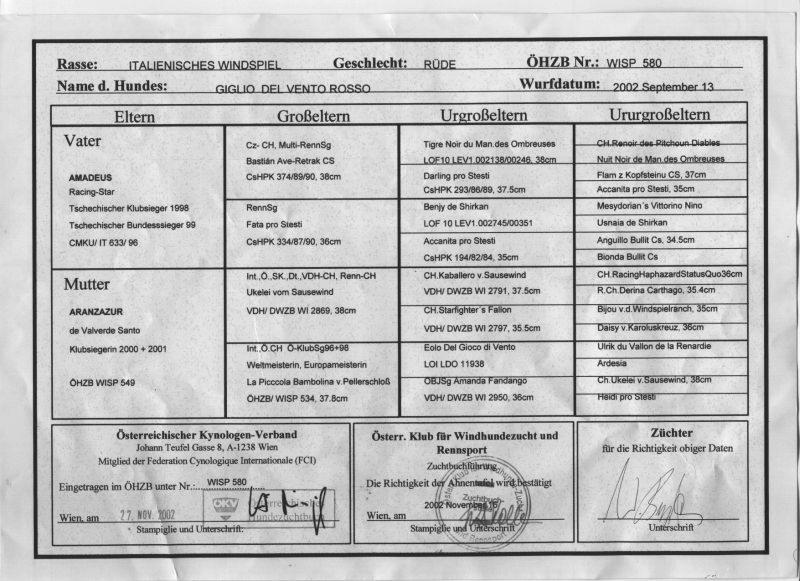 Rasse: ITALIENISCHES WINDSPIEL Geschlecht: RÜDE ÖHZB Nr.: WISP 580
Name d. Hundes: GIGLIO DEL VENTO ROSSO Wurfdatum: 2002 September 13
Eltern Großeltern Urgroßeltern Ururgroßeltern
Vater
AMADEUS
Racing-Star
Tschechischer Klubsieger 1998
Tschechischer Bundessieger 99
CMKU/ IT 633/ 96
Cz- CH, Multi-RennSg
Bastián Ave-Retrak CS
CsHPK 374/89/90, 38cm
RennSg
Fata pro Stesti
CsHPK 334/87/90, 36cm
Tigre Noir du Man.des Ombreuses
LOF10 LEV1.002138/00246, 38cm
Darling pro Stesti
CsHPK 293/86/89, 37.5cm
Benjy de Shirkan
LOF 10 LEV1.002745/00351
Accanita pro Stesti
CsHPK 194/82/84, 35cm
CH.Renoir des Pitchoun Diables
Nuit Noir de Man.des Ombreuses
Flam z Kopfsteinu CS, 37cm
Accanita pro Stesti, 35cm
Mesydorian´s Vittorino Nino
Usnaia de Shirkan
Anguillo Bullit Cs, 34.5cm
Bionda Bullit Cs
Mutter
ARANZAZUR
de Valverde Santo
Klubsiegerin 2000 + 2001
ÖHZB WISP 549
Int.,Ö.,SK.,Dt.,VDH-CH, Renn-CH
Ukelei vom Sausewind
VDH/ DWZB WI 2869, 38cm
Int.,Ö.CH Ö-KlubSg96+98
Weltmeisterin, Europameisterin
La Picccola Bambolina v.Pellerschloß
ÖHZB/ WISP 534, 37.8cm
CH.Kaballero v.Sausewind
VDH/ DWZB WI 2791, 37.5cm
CH.Starfighter´s Fallon
VDH/ DWZB WI 2797, 35.5cm
Eolo Del Gioco di Vento
LOI LDO 11938
OBJSg Amanda Fandango
VDH/ DWZB WI 2950, 36cm
CH.RacingHaphazardStatusQuo36cm
R.Ch.Derina Carthago, 35.4cm
Bijou v.d.Windspielranch, 35cm
Daisy v.Karoluskreuz, 36cm
Ulrik du Vallon de la Renardie
Ardesia
Ch.Ukelei v.Sausewind, 38cm
Heidi pro Stesti
Österreichischer Kynologen-Verband
Johann Teufel Gasse 8, A-1238 Wien
Mitglied der Federation Cynologique Internationale (FCI)
Eingetragen im ÖHZB unter Nr.: WISP 580
Wien, am 27. NOV. 2002
ÖKV
Österreichisches
Hundezuchtbuch
Stampiglie und Unterschrift:
Österr. Klub für Windhundezucht und
Rennsport
Zuchtbuchführung
Die Richtigkeit der Ahnentafel wird bestätigt
2002 November 16
Wien, am
Zuchtbuch
und Rennsport
Stampiglie und Unterschrift
Züchter
für die Richtigkeit obiger Daten
Unterschrift